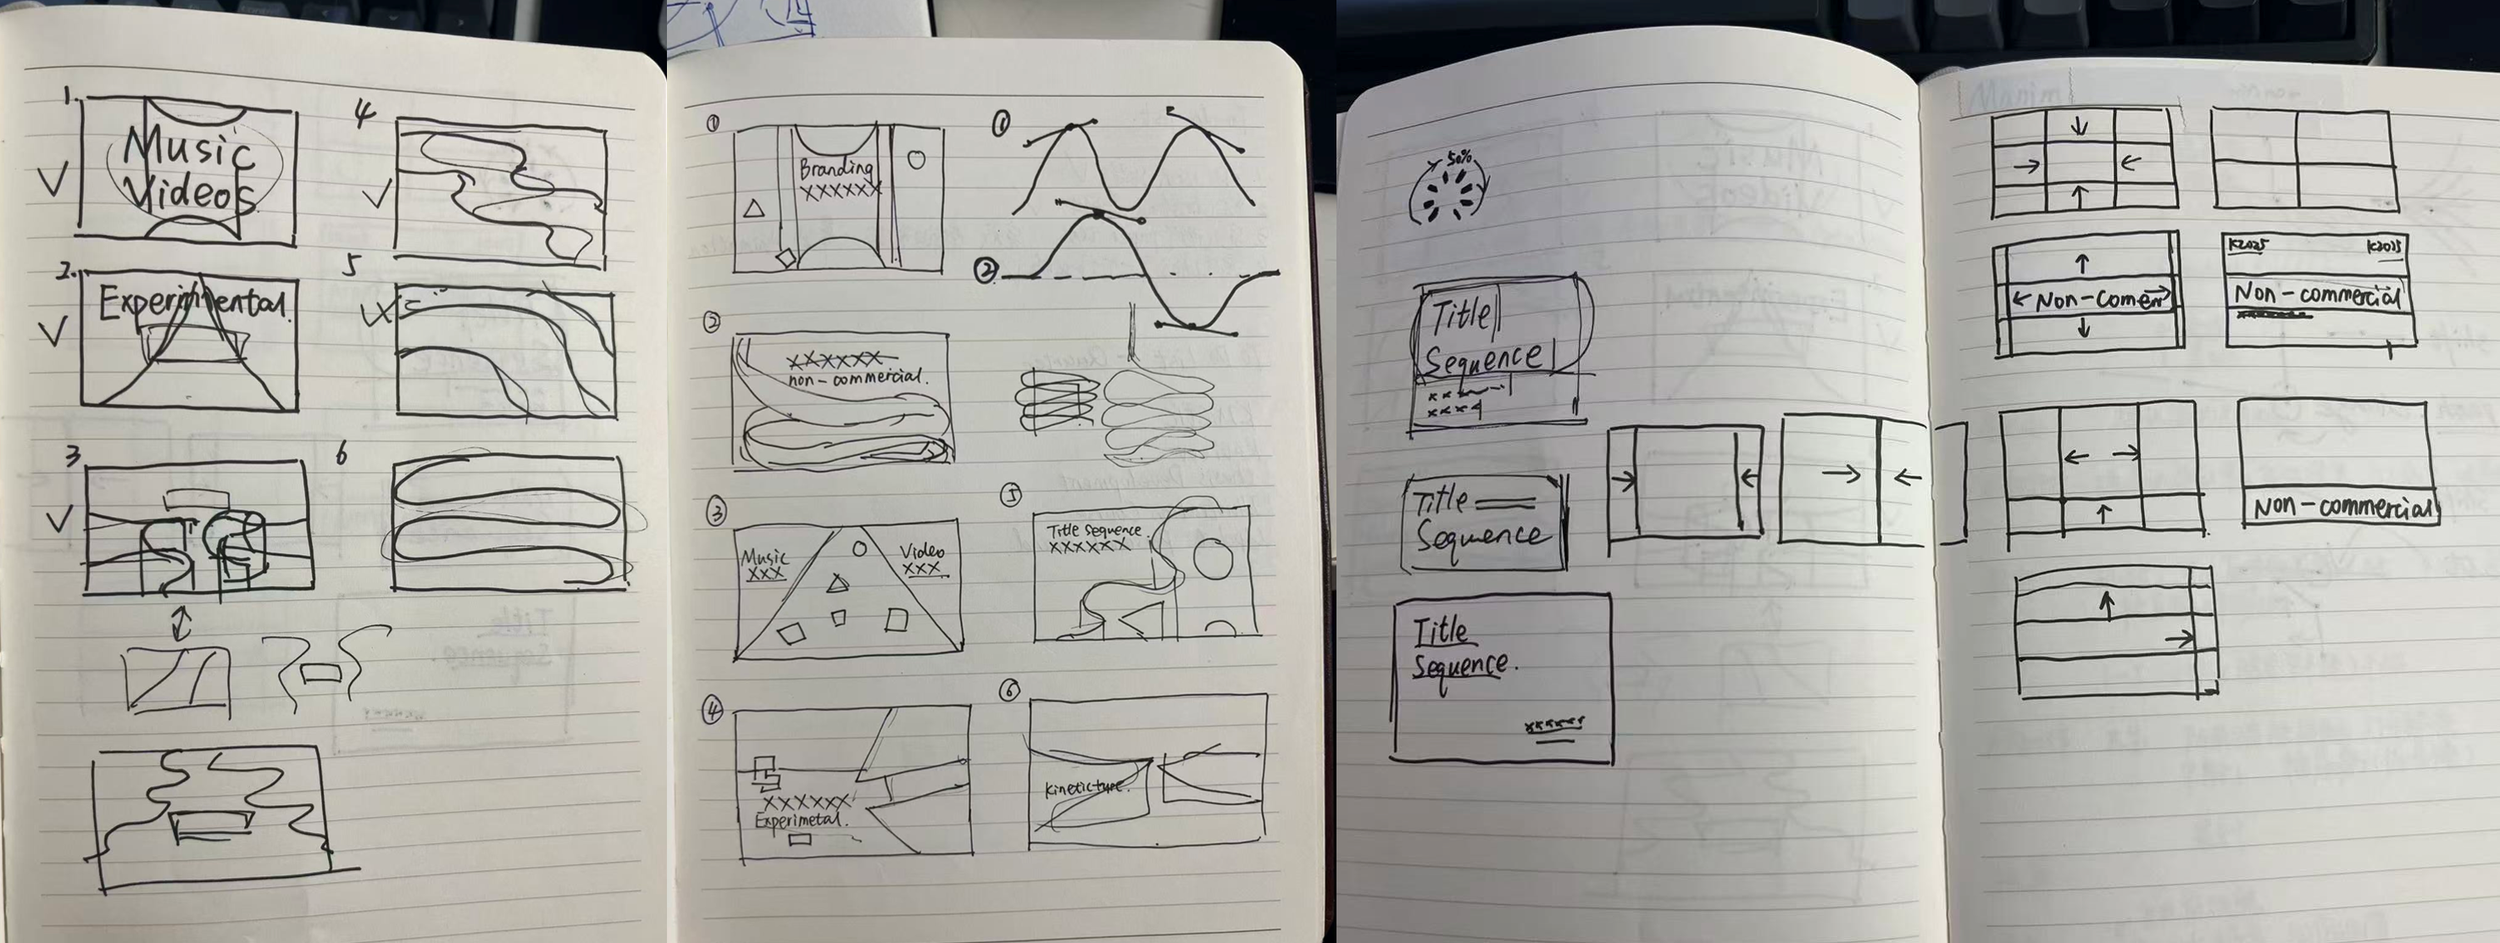 1.
Music
Videos
2.
Experimental.
3
4
5
6
①
Branding
XXXXXX
②
XXXXXX
non-commercial.
③
Music
XXX
Video
XXX
④
XXXXXX
Experimetal.
①
②
⑤
Title Sequence
XXXXXX
⑥
Kinetic type.
50%
Title
Sequence
xxxx
Title
Sequence
Title
Sequence.
xxxxxx
Manim
Non-Comer
K2025
K2025
Non-commercial
Non-commercial